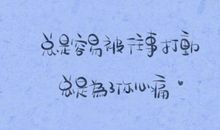 总是容易被往事打動
总是為了你心痛。